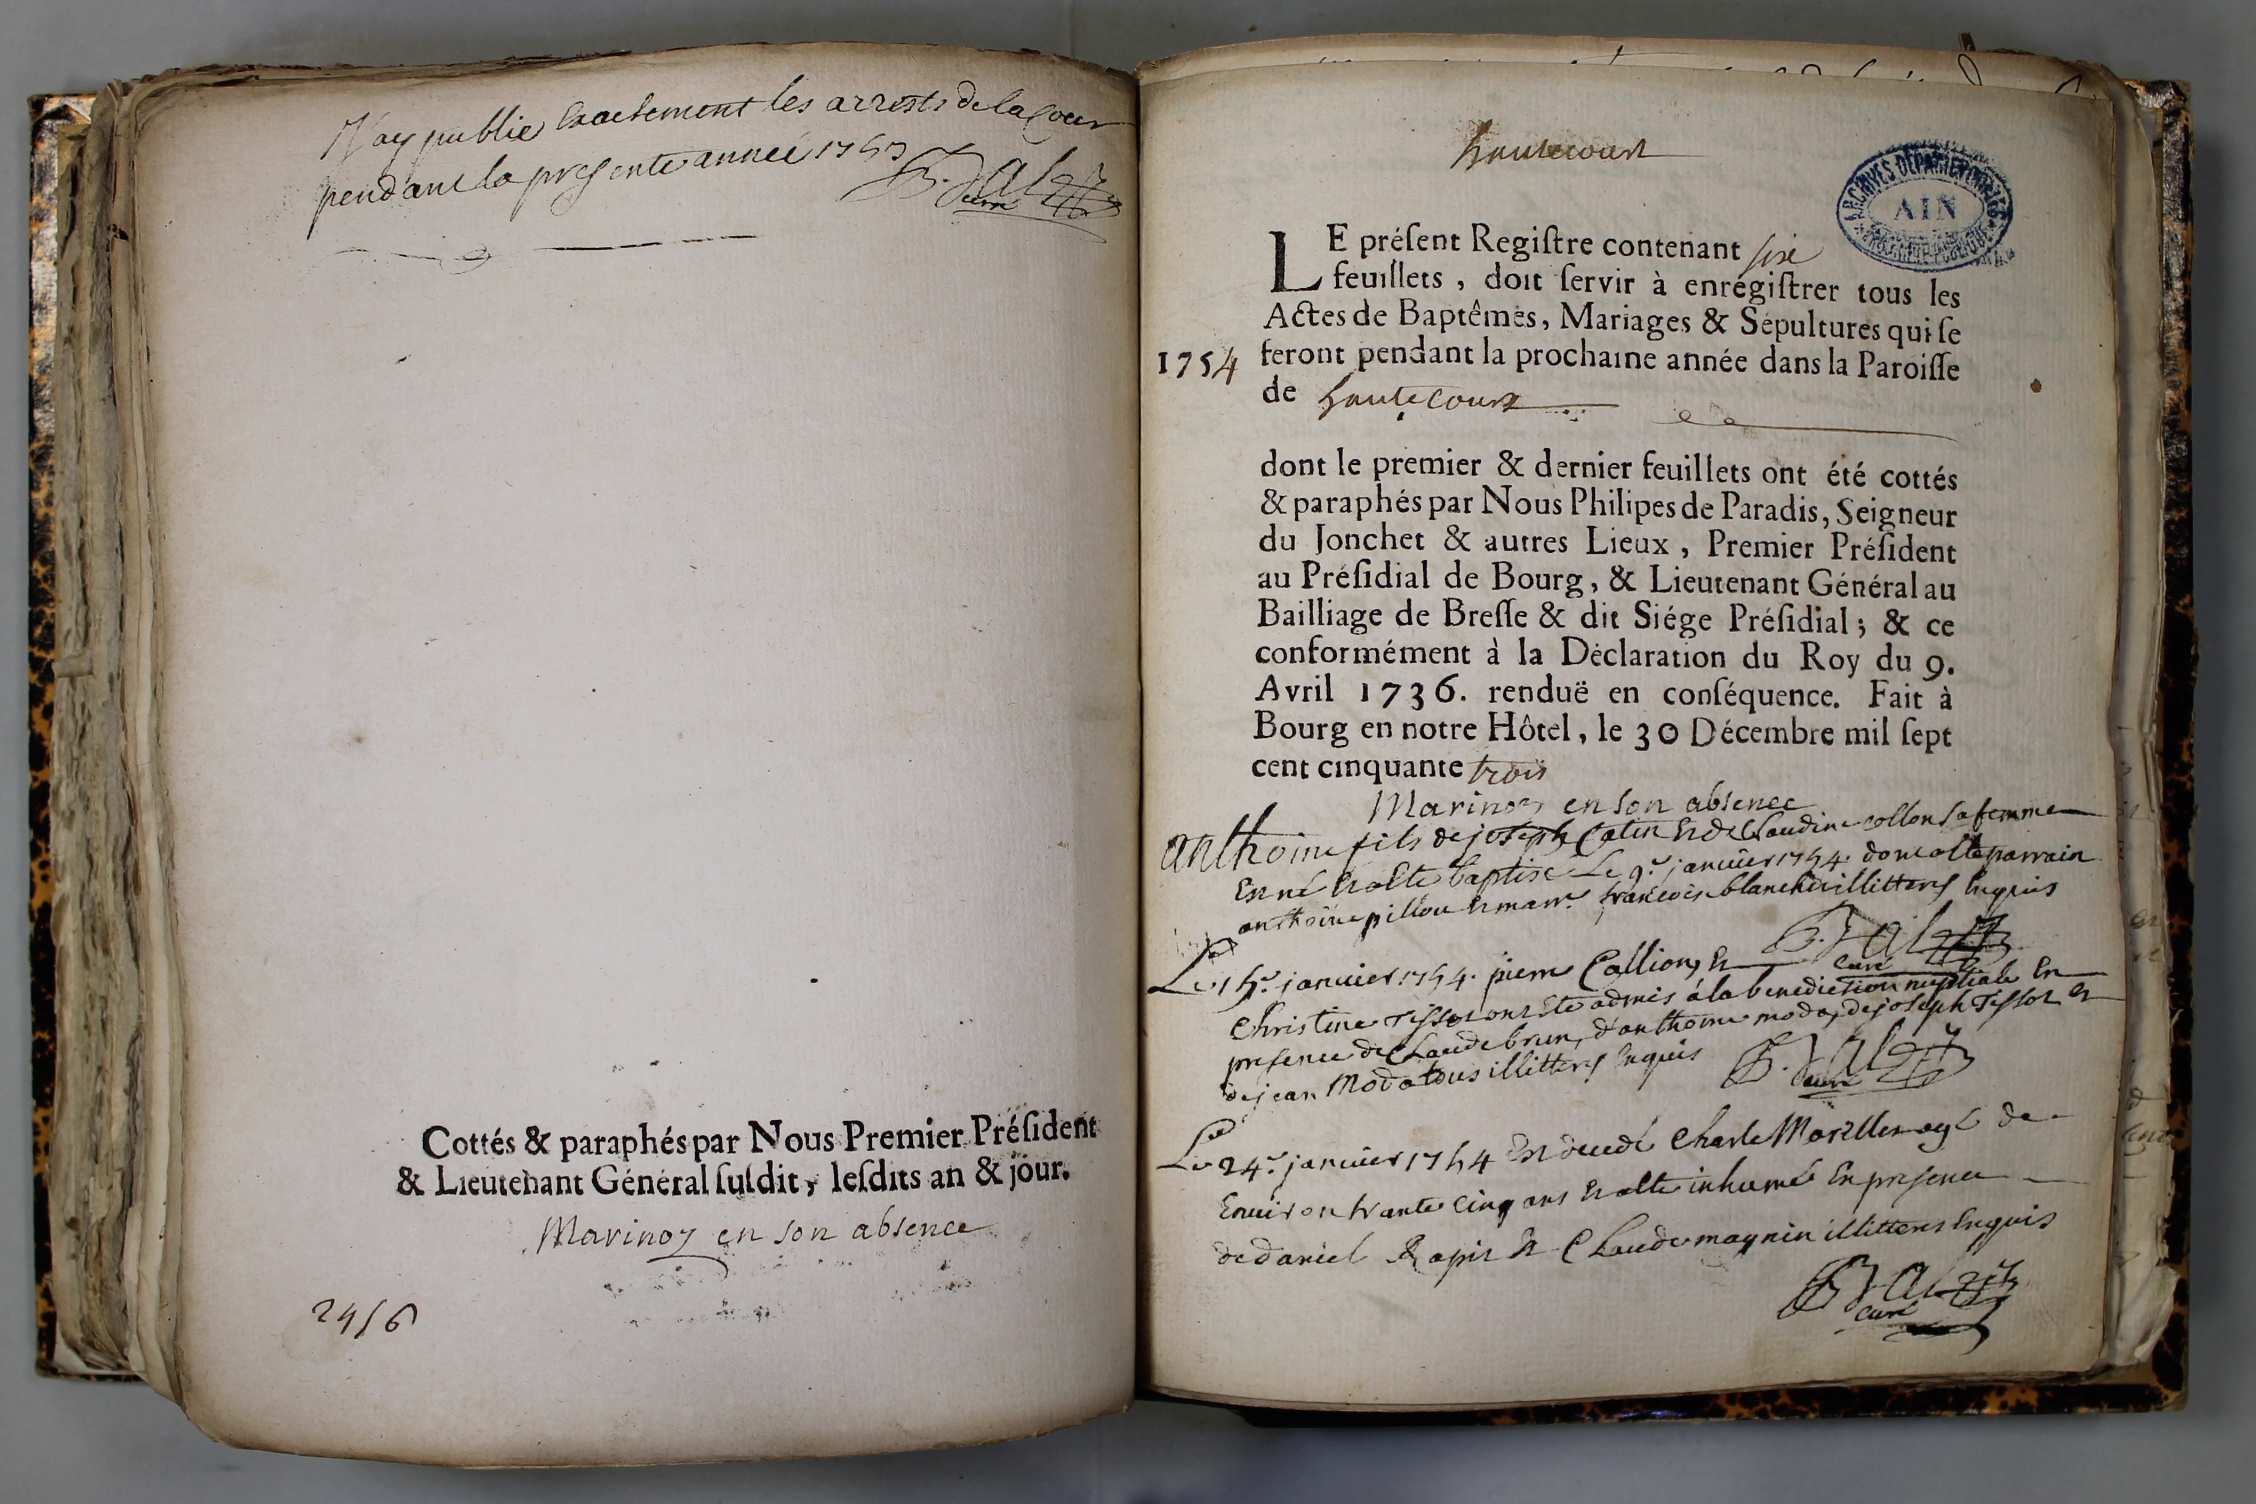 J'ay publié Exactement les arrests de la Cour
pendant la presente année 1753
B. cure
Cottés & paraphés par Nous Premier Préſident
& Lieutenant Général ſuſdit, leſdits an & jour.
en son absence
hautecourt
ARCHIVES DÉPARTEMENTALES
AIN
LE préſent Regiſtre contenant six
feuillets, doit ſervir à enrégiſtrer tous les
Actes de Baptêmes, Mariages & Sépultures qui ſe
1754 feront pendant la prochaine année dans la Paroiſſe
de hautecourt
dont le premier & dernier feuillets ont été cottés
& paraphés par Nous Philipes de Paradis, Seigneur
du Jonchet & autres Lieux, Premier Préſident
au Préſidial de Bourg, & Lieutenant Général au
Bailliage de Breſſe & dit Siége Préſidial; & ce
conformément à la Déclaration du Roy du 9.
Avril 1736. renduë en conſéquence. Fait à
Bourg en notre Hôtel, le 30 Décembre mil ſept
cent cinquante trois
en son absence
anthoine fils de joseph Catin Et de Claudine collon sa femme
Est né Et a Ete baptisé Le 9.e janvier 1754. dont a Ete parrain
anthoine pillou Et marr.e francoise illitterés Enquis
cure
Le 15.e janvier 1754. pierre Callion, Et
Christine Tissot ont Eté admis á la benediction nuptiale En
presence de Claude brun, d'anthoine moda, de joseph Tissot Et
de jean Moda tous illitterés Enquis
cure
Le 24.e janvier 1754 Est decedé Charle Morellet agé de
Environ trante cinq ans Et a Ete inhumé En presence
de daniel Rapit Et Claude maynin illitterés Enquis
cure